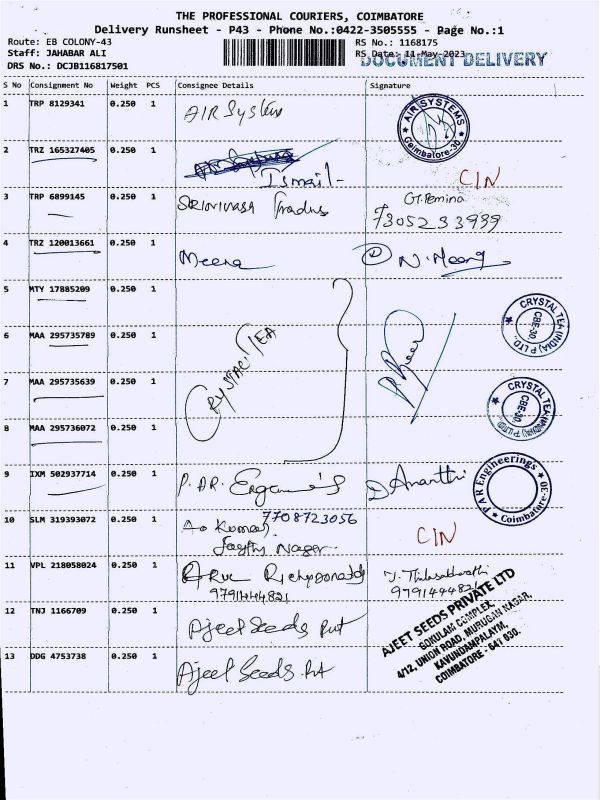 THE PROFESSIONAL COURIERS, COIMBATORE
Delivery Runsheet - P43 - Phone No.:0422-3505555 - Page No.:1
Route: EB COLONY-43 RS No.: 1168175
Staff: JAHABAR ALI RS Date: 11-May-2023
DOCUMENT DELIVERY
DRS No.: DCJB116817501
S No Consignment No Weight PCS Consignee Details Signature
1 TRP 8129341 0.250 1 AIR System
AIR SYSTEMS Coimbatore-30
2 TRZ 165327405 0.250 1
Ismail CIN
3 TRP 6899145 0.250 1 SRINIVASA
7305233939
4 TRZ 120013661 0.250 1 Meena N. Meena
5 MTY 17885209 0.250 1
CRYSTAL TEA (INDIA) P LTD. CBE-30
6 MAA 295735789 0.250 1 CRYSTAL TEA
7 MAA 295735639 0.250 1
CRYSTAL TEA (INDIA) P LTD. CBE-30
8 MAA 295736072 0.250 1
9 IXM 502937714 0.250 1 P. AR. Ananthi
P A R Engineerings Coimbatore-30
10 SLM 319393072 0.250 1 Kumar 7708723056
Nagar CIN
11 VPL 218058024 0.250 1
9791444821 9791444821
12 TNJ 1166709 0.250 1 Ajeet Seeds Pvt
AJEET SEEDS PRIVATE LTD
GOKULAM COMPLEX,
4/12, UNION ROAD, MURUGAN NAGAR,
KAVUNDAMPALAYM,
COIMBATORE - 641 030.
13 DDG 4753738 0.250 1 Ajeet Seeds Pvt